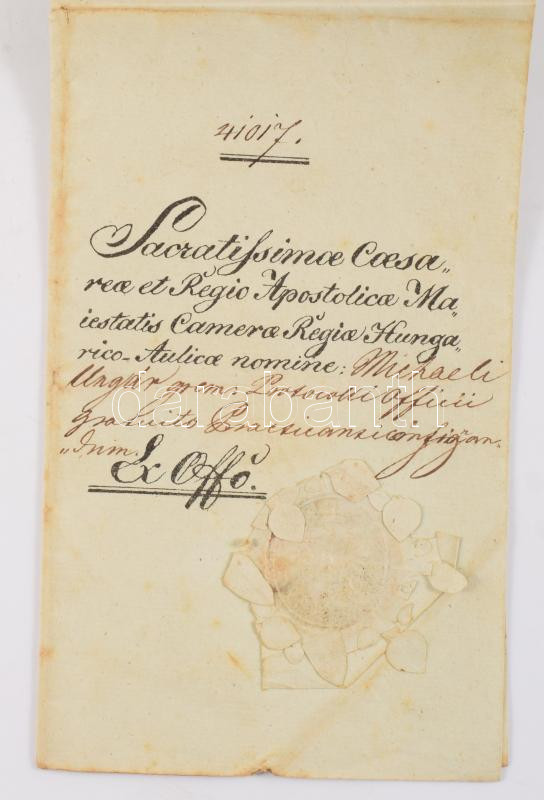 41017.
Sacratissimæ Cæsa„
reæ et Regio Apostolicæ Ma„
iestatis Cameræ Regiæ Hunga„
rico-Aulicæ nomine: Michaeli
Ungár grem. Protocolli Officii
gratuito Practicanti consignan„
„dum.
Ex Offõ.
darabanth